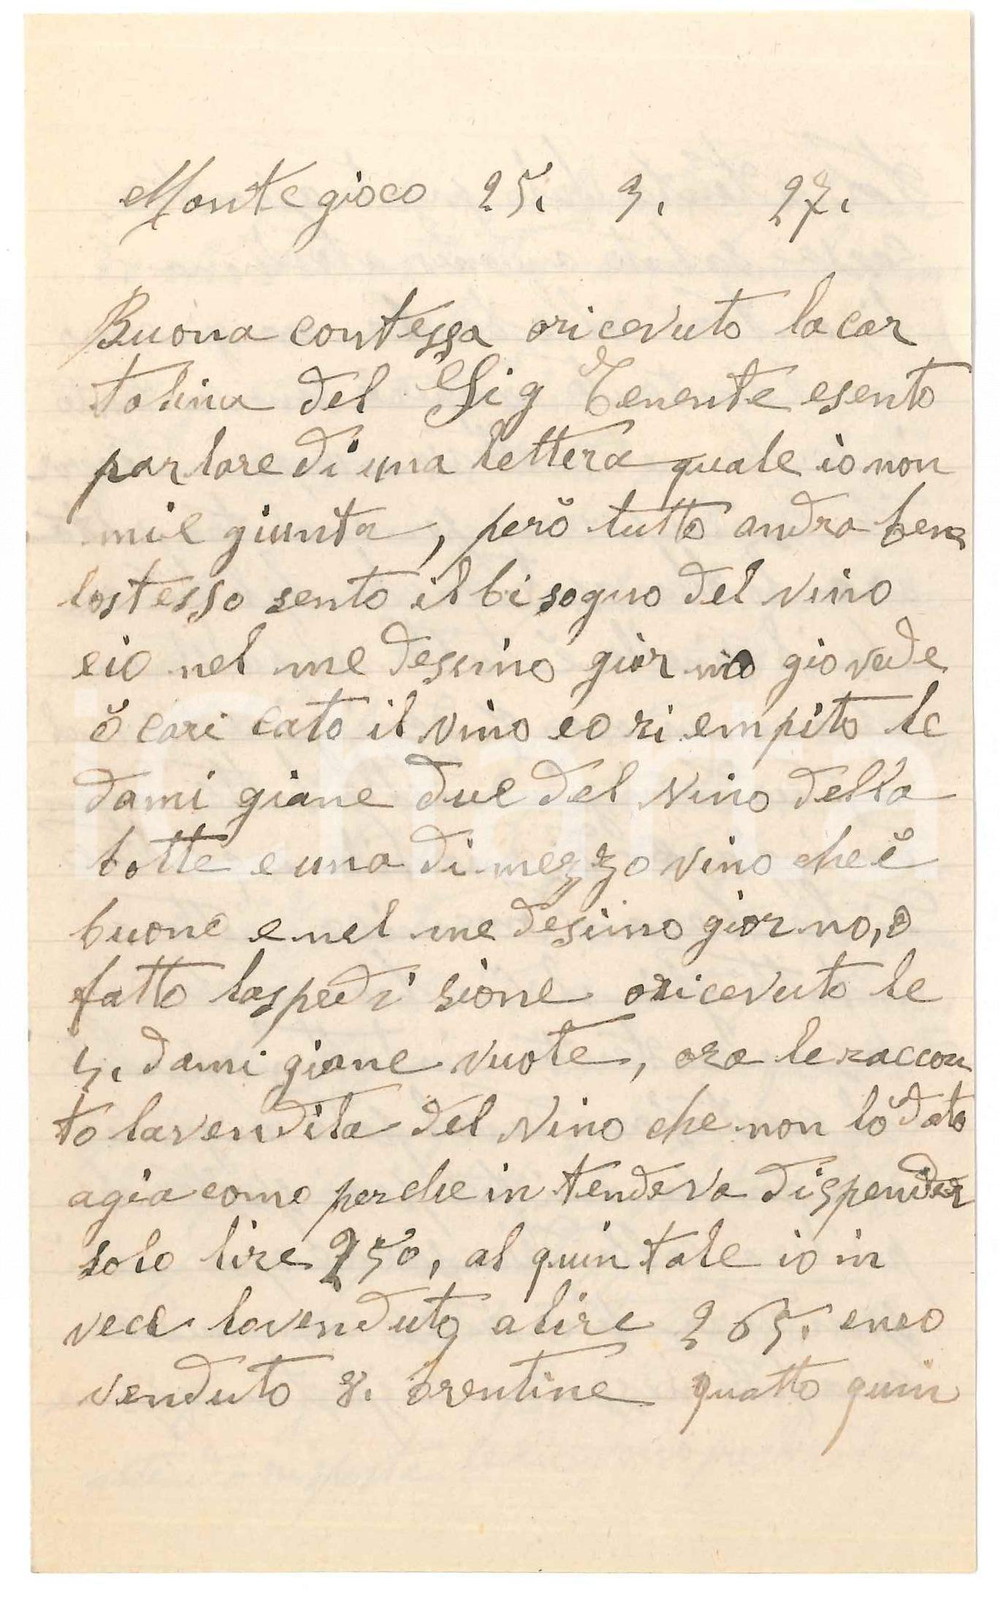 Montegioco 25. 3. 27.
Buona contessa oricevuto lacar
tolina del Sig Tenente esento
parlare di una lettera quale io non
mie giunta, però tutto andra bene
lostesso sento il bisogno del vino
eio nel me dessimo giorno giovede
ò cari cato il vino eo ri empito le
dami giane due del vino della
botte e una di mezzo vino che è
buone e nel me desimo giorno, o
fatto laspedi sione oricevuto le
5. dami giane vuote, ora le raccon
to lavendita del vino che non lò dato
agia como perche in tendeva dispender
solo lire 250, al quin tale io in
vece lovenduto a lire 265. eneo
venduto 8. brentine quatto quin